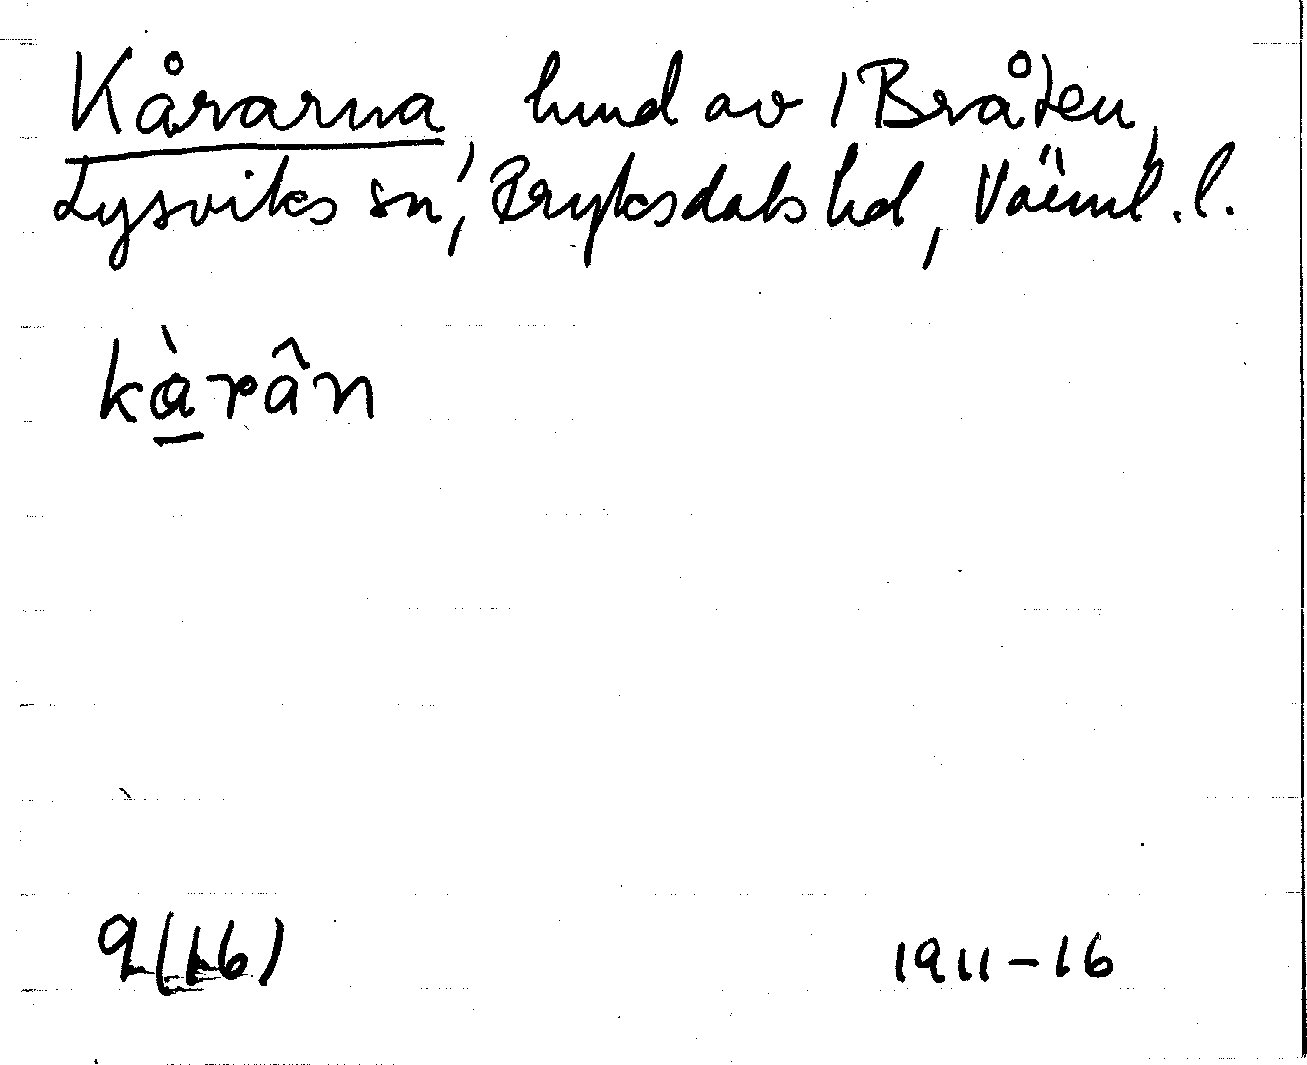 Kårarna, hmd av 1 Bråten,
Lysviks sn, Fryksdals hd, Värml. l.
kàrân
9(16)
1911-16